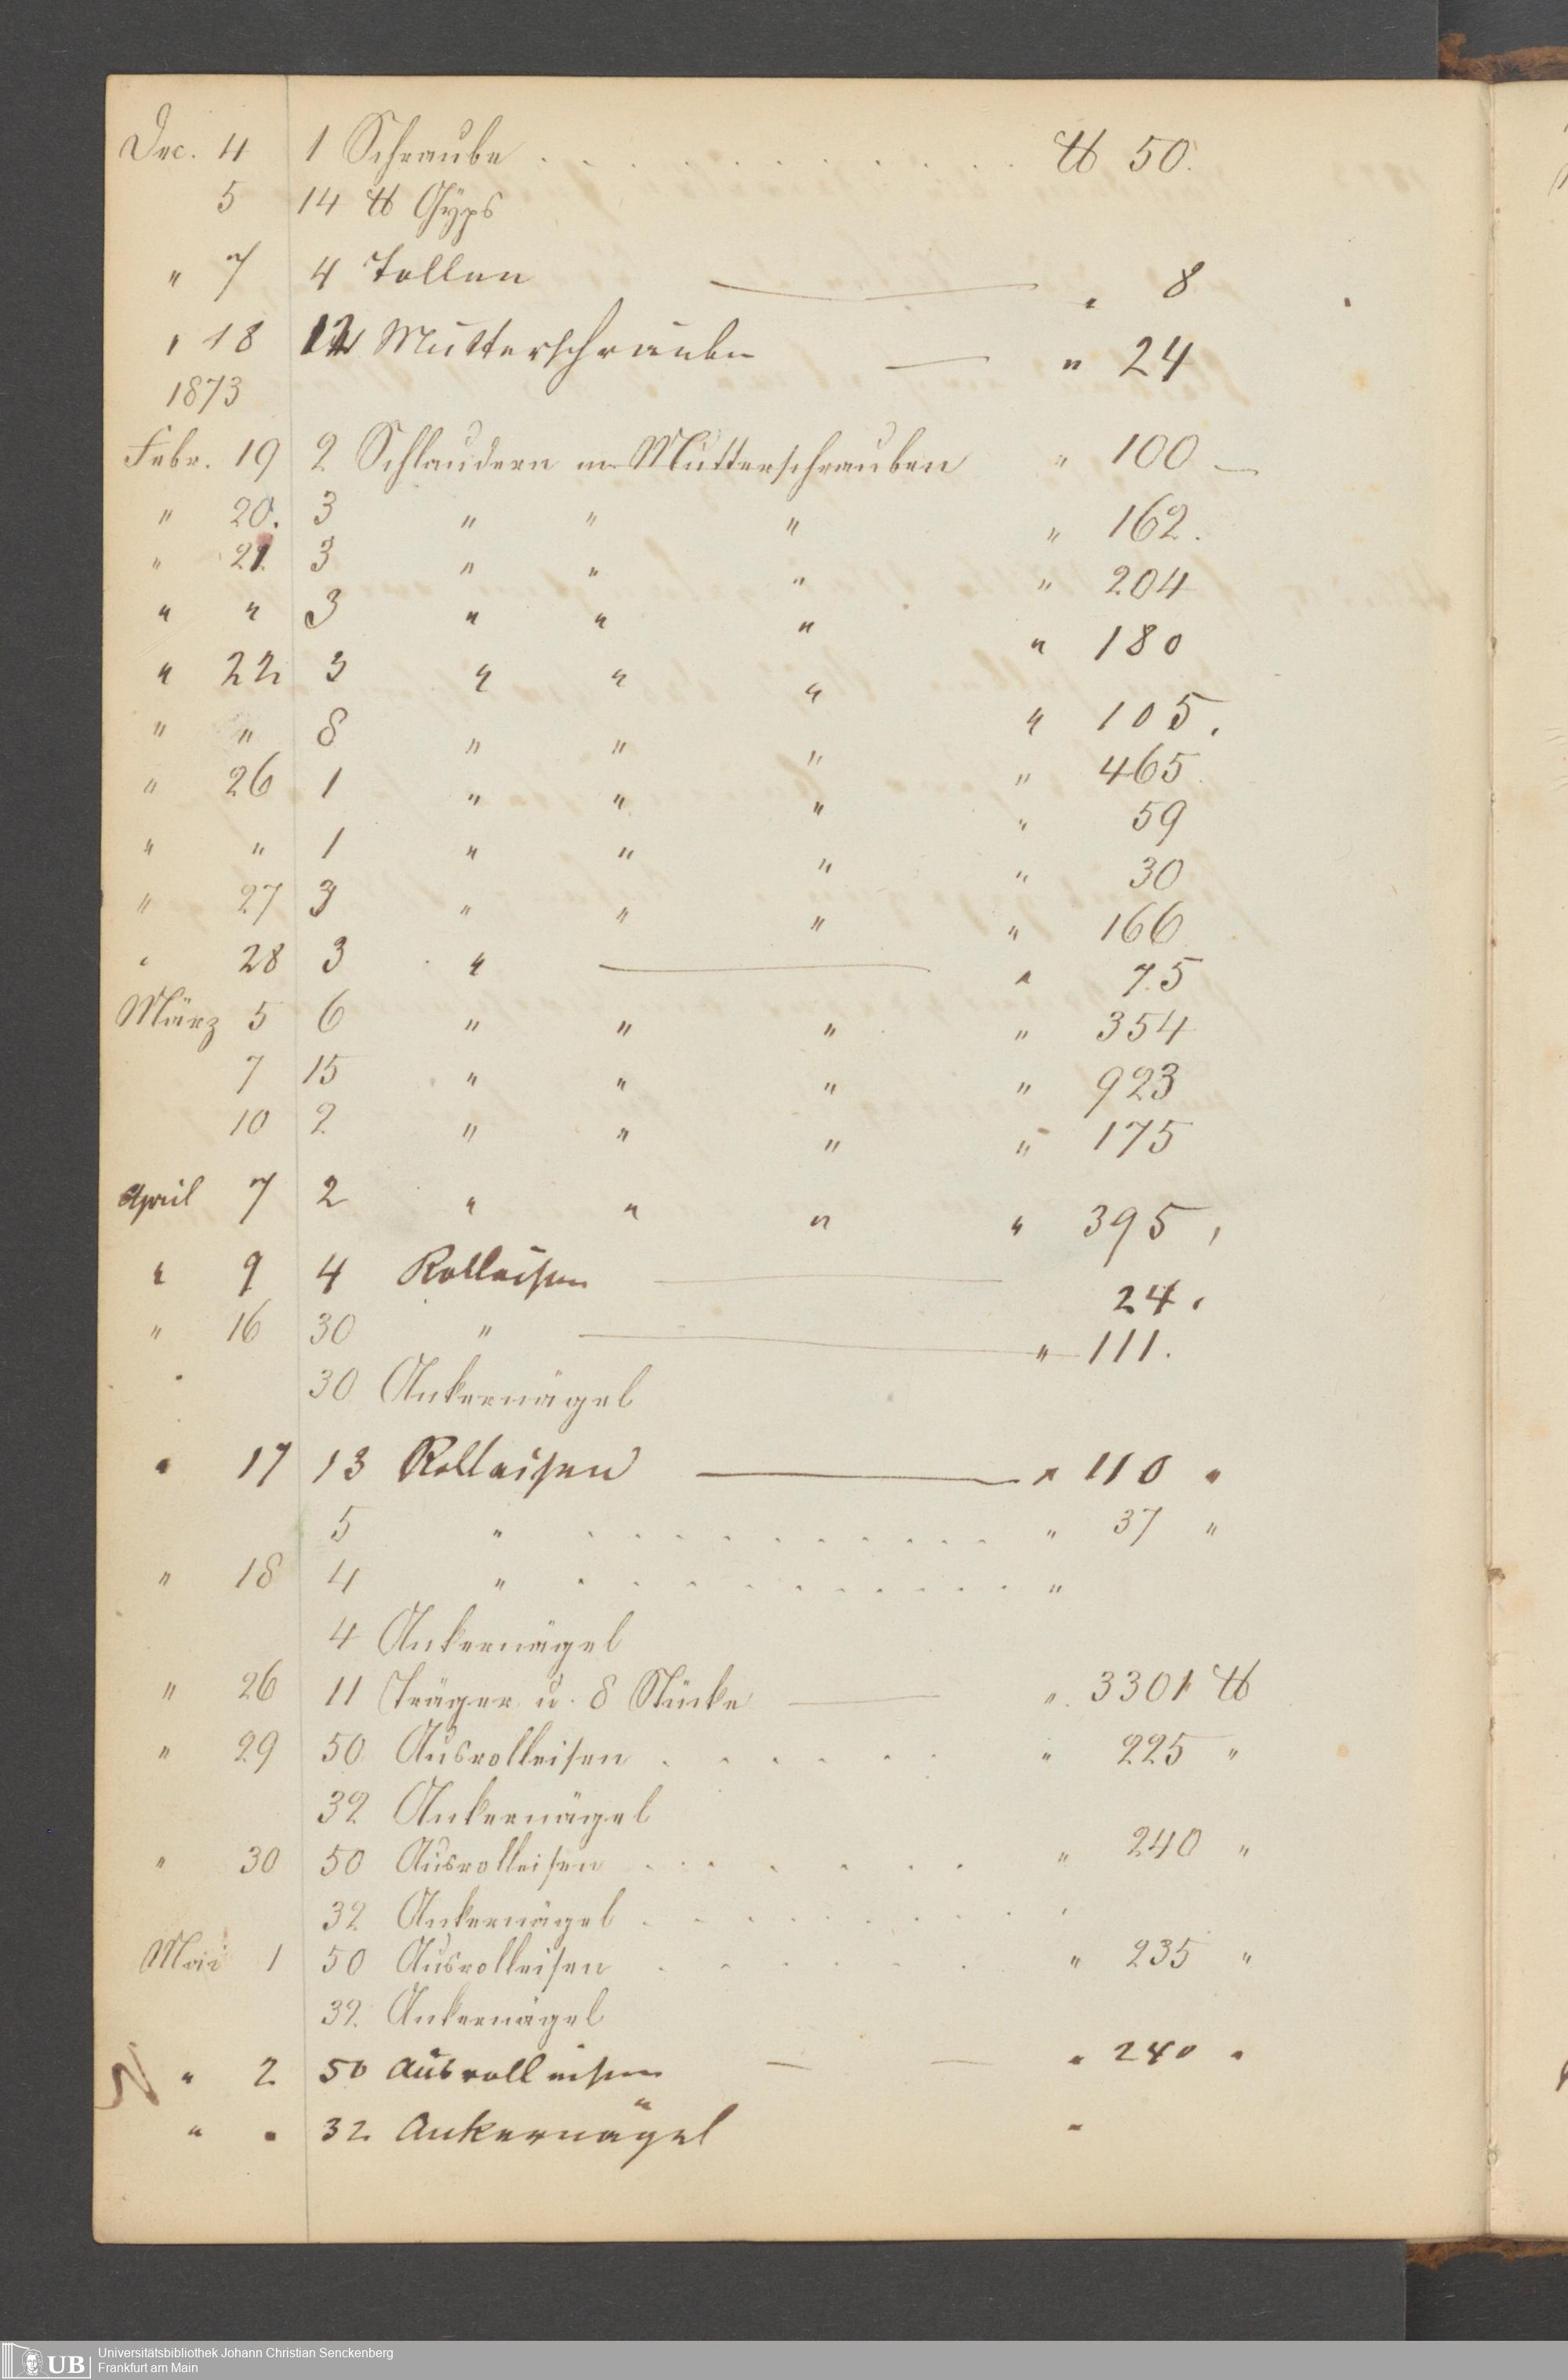 Dec. 4 1 Schraube . . . . . . . . . . ℔ 50.
5 14 ℔ Gÿps
" 7 4 Tollen — " 8
" 18 12 Mutterschrauben — " 24
1873
Febr. 19 2 Schlaudern m Mutterschrauben " 100 —
" 20. 3 " " " " 162.
" 21. 3 " " " " 204
" " 3 " " " " 180
" 22 3 " " " " 105.
" " 8 " " " " 465.
" 26 1 " " " " 59
" " 1 " " " " 30
" 27 3 " " " " 166
" 28 3 " — " 75
März 5 6 " " " " 354
7 15 " " " " 923
10 2 " " " " 175
April 7 2 " " " " 395.
" 9 4 Rolleisen — 24.
" 16 30 " — " 111.
30 Ankernägel
" 17 13 Rolleisen — " 110 "
5 " . . . . . . . . . " 37 "
" 18 4 " . . . . . . . . . "
4 Ankernägel
" 26 11 Träger u. 8 Stücke — " 3301 ℔
" 29 50 Ausrolleisen . . . . . . " 225 "
32 Ankernägel
" 30 50 Ausrolleisen . . . . . . . " 240 "
32 Ankernägel . . . . . . . . .
Mai 1 50 Ausrolleisen . . . . . . " 235 "
32 Ankernägel
" 2 50 Ausrolleisen — — " 240 "
" " 32 Ankernägel "
UB Universitätsbibliothek Johann Christian Senckenberg
Frankfurt am Main